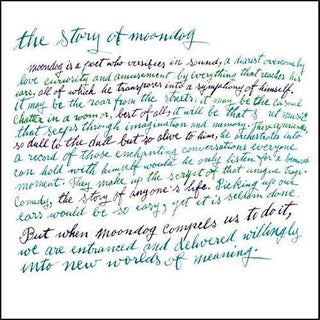 the story of moondog
moondog is a poet who versifies in sound, a diarist overcome by
love curiosity and amusement by everything that reaches his
ears, all of which he transposes into a symphony of himself.
it may be the roar from the streets, it may be the casual
chatter in a room or, best of all, it will be that secret music
that seeps through imagination and memory. They appear
so dull to the dull but so alive to him, he orchestrates into
a record of those enchanting conversations everyone
can hold with himself would he only listen for a
moment. They make up the script of that unique tragi-
comedy, the story of anyone's life. Picking up our
ears would be so easy, yet it is seldom done.
But when moondog compels us to do it,
we are entranced and delivered willingly
into new worlds of meaning.